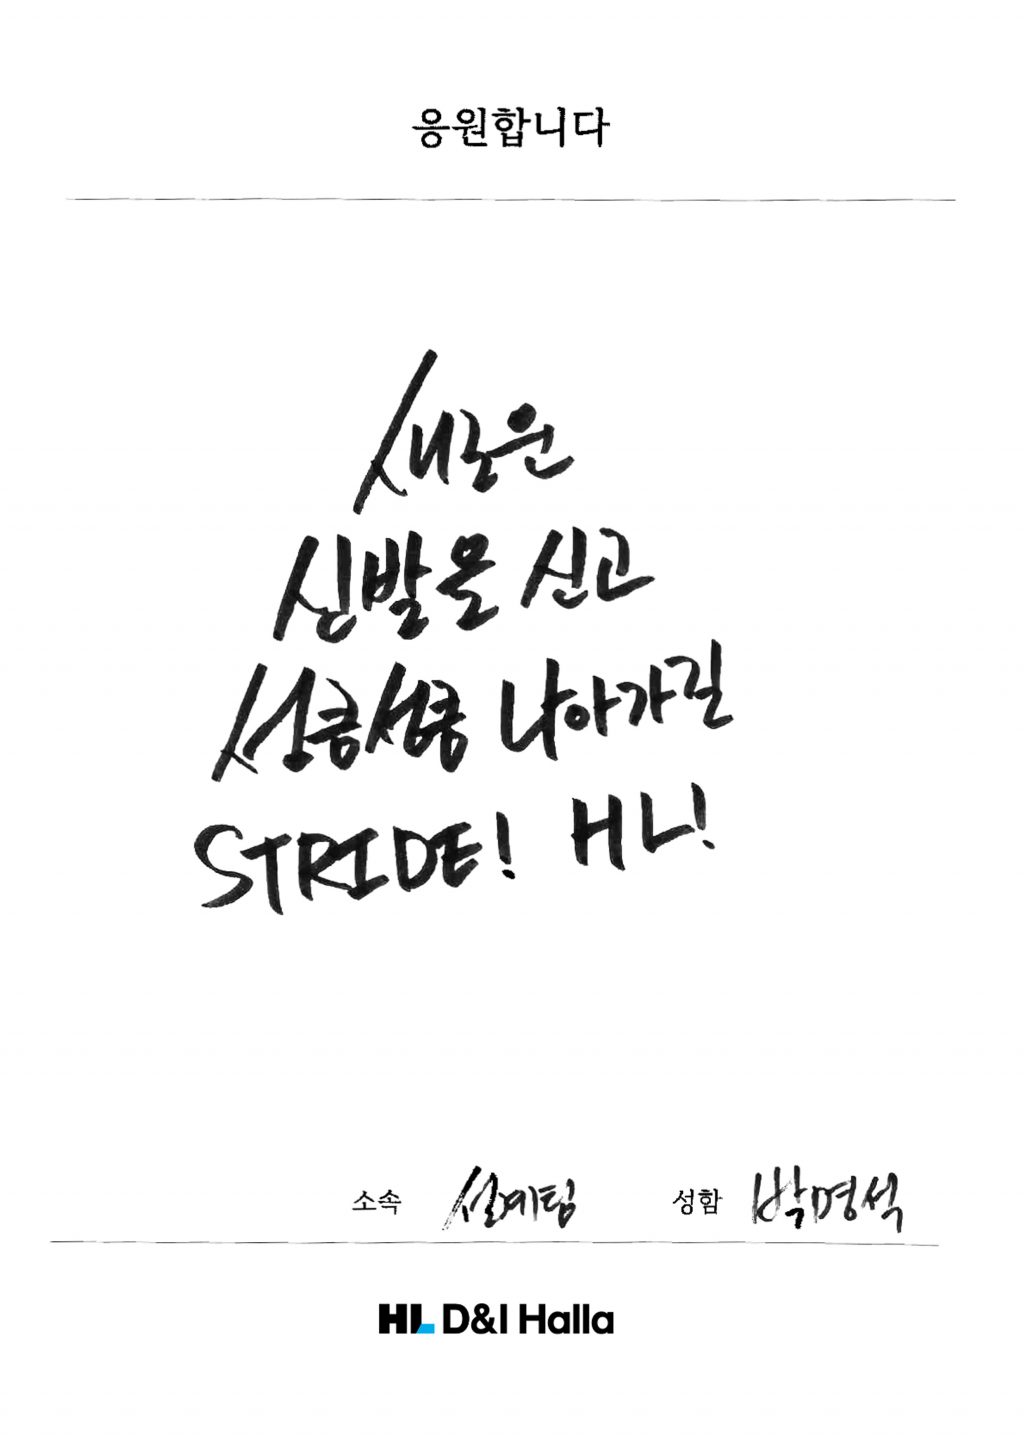 응원합니다
새로운
신발을 신고
성큼성큼 나아가길
STRIDE! HL!
소속 설계팀 성함 박명석
HL D&I Halla